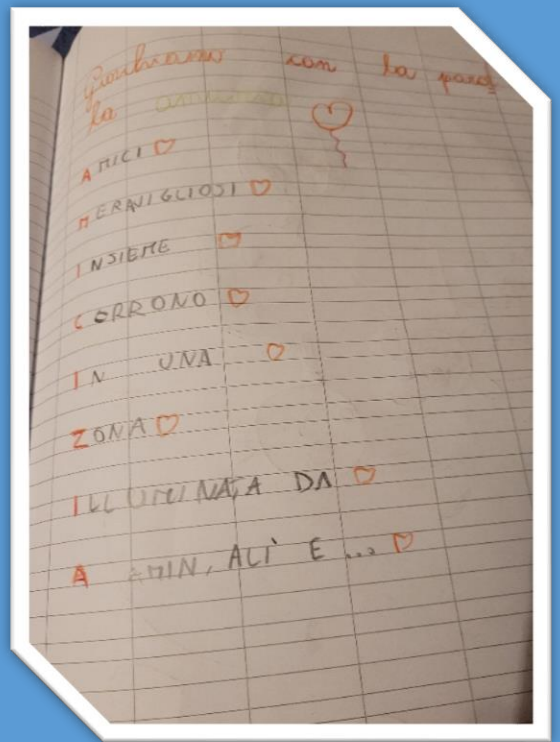 Giochiamo con la paro
la amicizia
AMICI
MERAVIGLIOSI
INSIEME
CORRONO
IN UNA
ZONA
ILLUMINATA DA
AMIN, ALÌ E ...